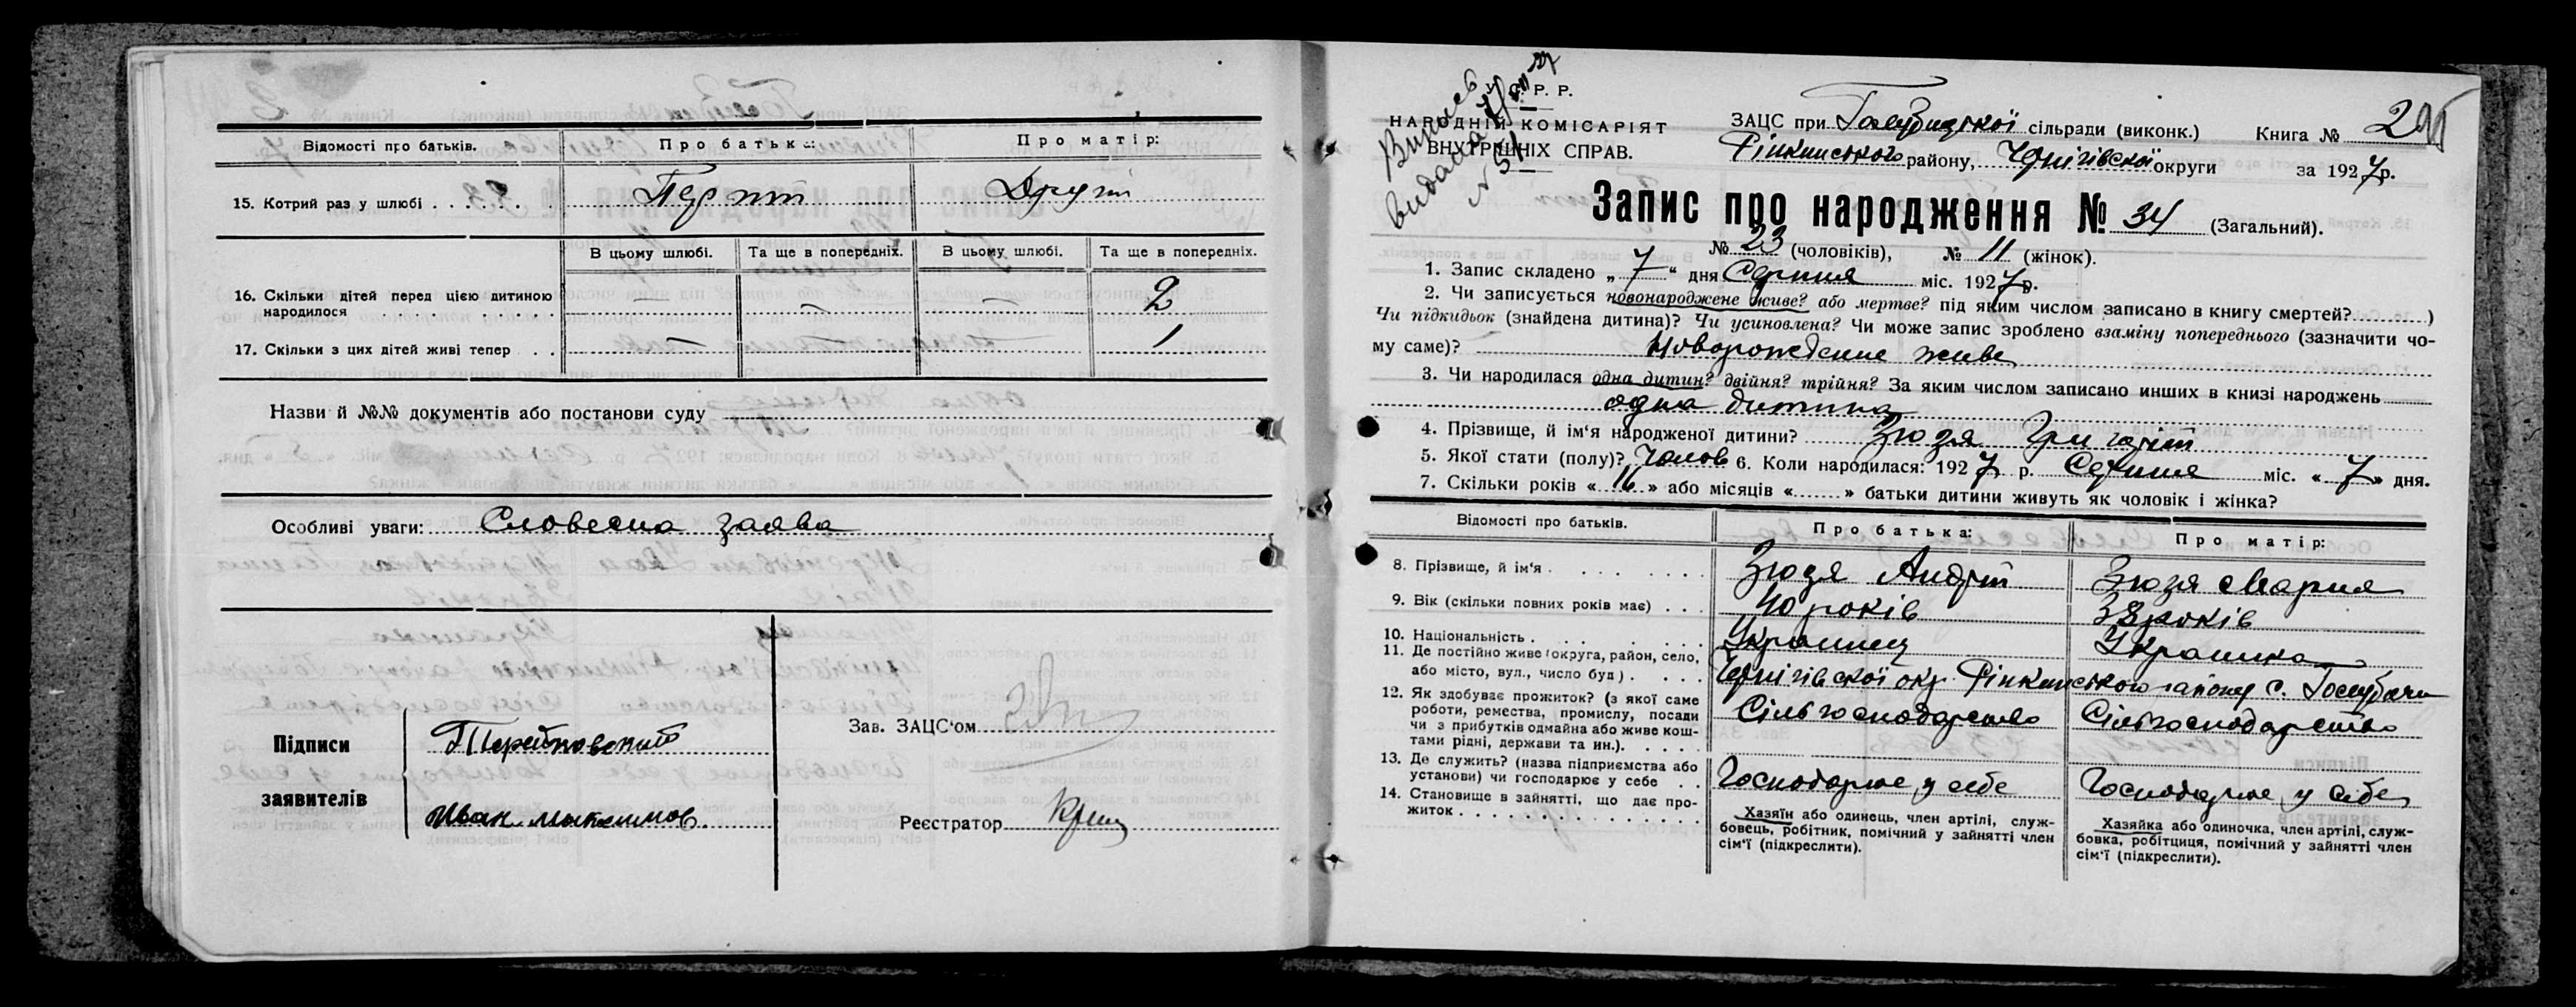 Відомості про батьків. Про батька: Про матір:
15. Котрий раз у шлюбі . . . . . . . Перший Другий
В цьому шлюбі. Та ще в попередніх. В цьому шлюбі. Та ще в попередніх.
16. Скільки дітей перед цією дитиною
народилося . . . . . . . . . — — — 2
17. Скільки з цих дітей живі тепер . . — — — 1
Назви й №№ документів або постанови суду
Особливі уваги: Словесна заява
Підписи
заявителів
Иван Максимов
Зав. ЗАЦС'ом
Реєстратор
Випись
видана
У. С. Р. Р.
НАРОДНІЙ КОМІСАРІЯТ
ВНУТРІШНІХ СПРАВ.
ЗАЦС при Голубицької сільради (виконк.) Книга № 2
Ріпкинського району, Чернігівської округи за 1927 р.
Запис про народження № 34 (Загальний).
№ 23 (чоловіків), № 11 (жінок).
1. Запис складено „ 7 " дня Серпня міс. 1927 р.
2. Чи записується новонароджене живе? або мертве? під яким числом записано в книгу смертей? )
Чи підкидьок (знайдена дитина)? Чи усиновлена? Чи може запис зроблено взаміну попереднього (зазначити чо-
му саме)? Новорождение живе
3. Чи народилася одна дитин? двійня? трійня? За яким числом записано инших в книзі народжень
одна дитина
4. Прізвище, й ім'я народженої дитини? Зюзя Григорій
5. Якої стати (полу)? Чолов 6. Коли народилася: 1927 р. Серпня міс. « 7 » дня.
7. Скільки років « 16 » або місяців « » батьки дитини живуть як чоловік і жінка?
Відомості про батьків. Про батька: Про матір:
8. Прізвище, й ім'я . . . . . . . . Зюзя Андрій Зюзя Мария
9. Вік (скільки повних років має) . . . 40 років 38 років
10. Національність . . . . . . . . Украинец Украинка
11. Де постійно живе (округа, район, село,
або місто, вул., число буд) . . . . . Чернігівської окр. Ріпкинського району с. Голубичи
12. Як здобуває прожиток? (з якої саме
роботи, ремества, промислу, посади
чи з прибутків одмайна або живе кош-
тами рідні, держави та ин.). . . . . Сільгосподарство Сільгосподарство
13. Де служить? (назва підприємства або
установи) чи господарює у себе . . Господарює у себе Господарює у себе
14. Становище в зайнятті, що дає про-
житок . . . . . . . . . . . . . .
Хазяїн або одинець, член артілі, служ-
бовець, робітник, помічний у зайнятті член
сім'ї (підкреслити).
Хазяйка або одиночка, член артілі, служ-
бовка, робітниця, помічний у зайнятті член
сім'ї (підкреслити).